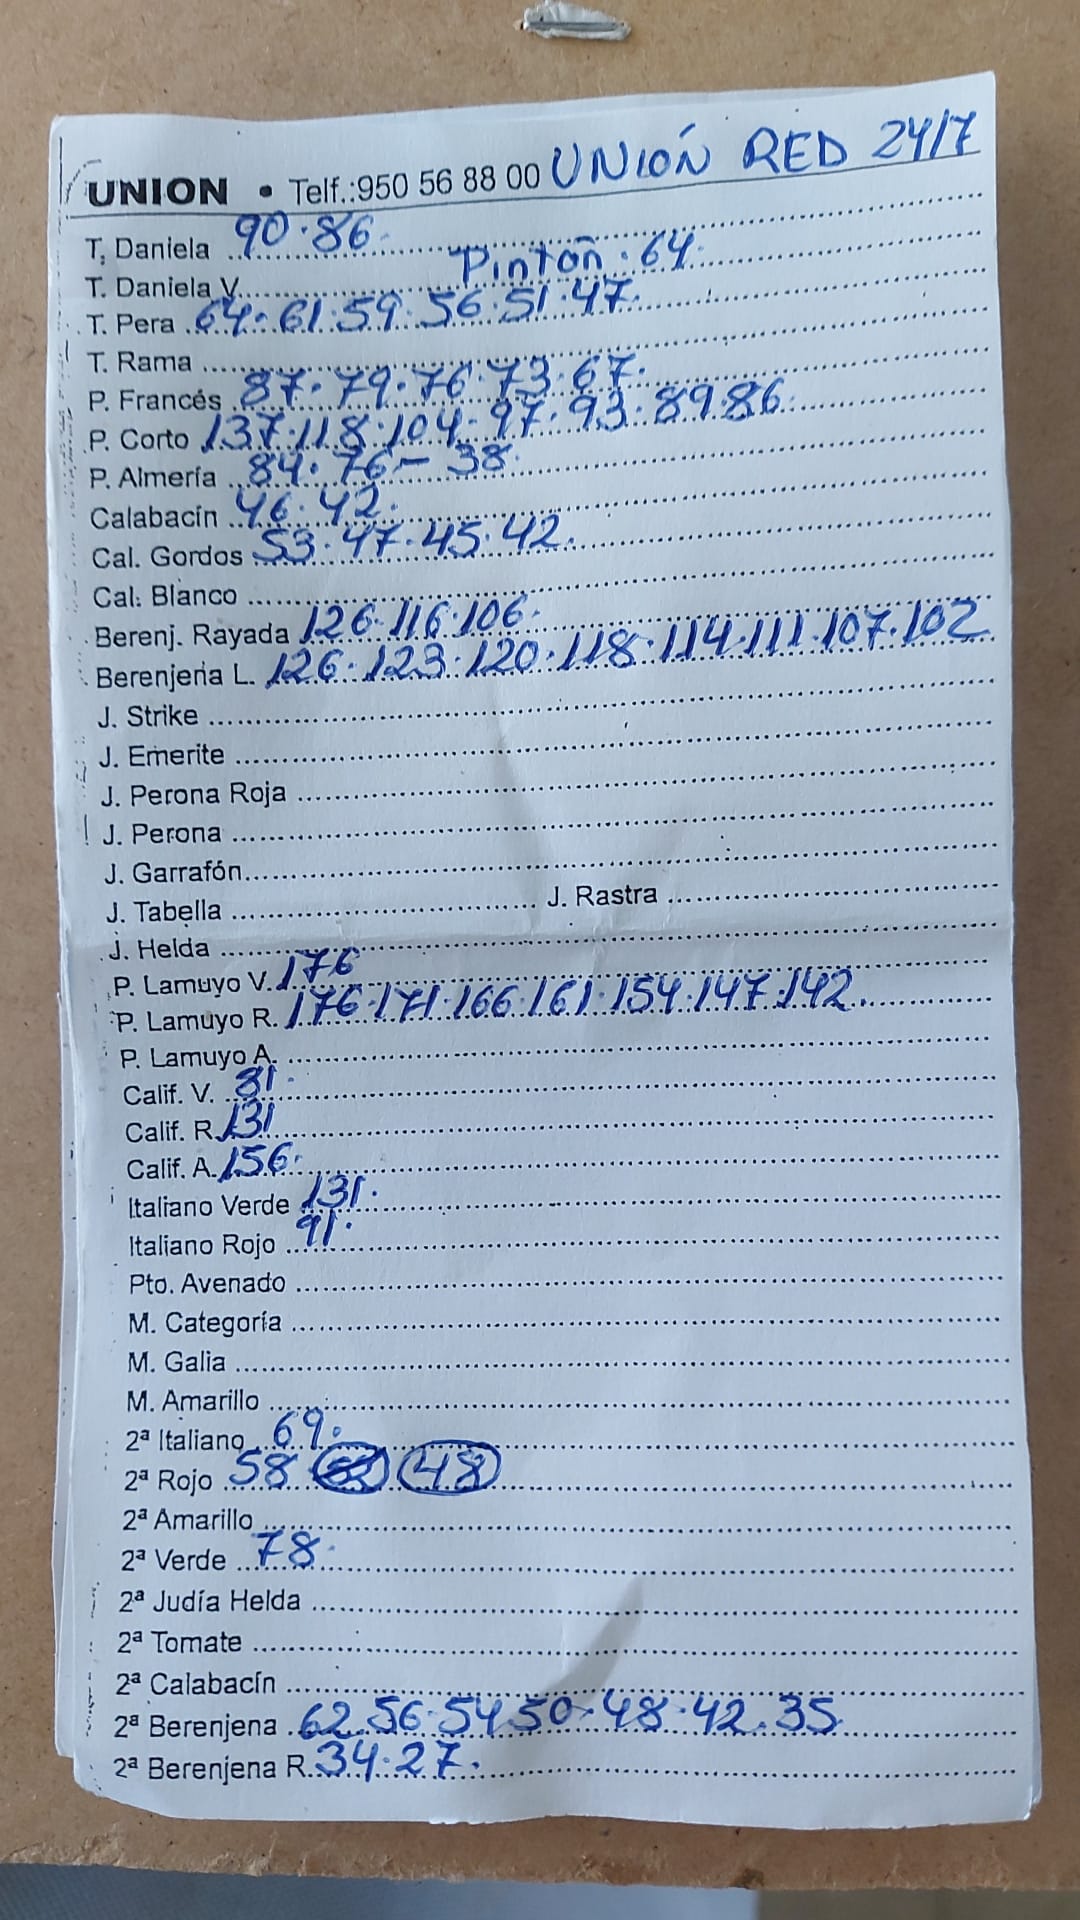 UNION • Telf.:950 56 88 00 UNIÓN RED 24/7
T. Daniela 90.86.
T. Daniela V. Pintón.64.
T. Pera 64.61.59.56.51.47.
T. Rama
P. Francés 87.79.76.73.67.
P. Corto 137.118.104.97.93.89.86.
P. Almería 84.76-38.
Calabacín 46.42.
Cal. Gordos 53.47.45.42.
Cal. Blanco
Berenj. Rayada 126.116.106.
Berenjena L. 126.123.120.118.114.111.107.102
J. Strike
J. Emerite
J. Perona Roja
J. Perona
J. Garrafón
J. Tabella J. Rastra
J. Helda
P. Lamuyo V. 176
P. Lamuyo R. 176.171.166.161.154.147.142.
P. Lamuyo A.
Calif. V. 81.
Calif. R. 131
Calif. A. 156.
Italiano Verde 131.
Italiano Rojo 91.
Pto. Avenado
M. Categoría
M. Galia
M. Amarillo
2ª Italiano 69.
2ª Rojo 58 48
2ª Amarillo
2ª Verde 78.
2ª Judía Helda
2ª Tomate
2ª Calabacín
2ª Berenjena 62.56.54.50.48.42.35
2ª Berenjena R. 34.27.